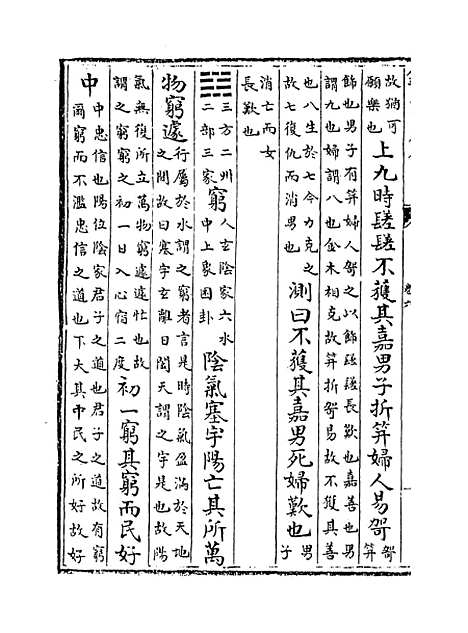 故猶可
願樂也
上九時𨲠𨲠不獲其嘉男子折笄婦人易哿
哿
笄
飾也男子有笄婦人哿之以飾𨲠𨲠長歎也嘉善也男
謂九也婦謂八也金木相克故笄折哿易故不獲其善
也八生於七今力克之
故七復仇而消男也
測曰不獲其嘉男死婦歎也
男
子
消亡而女
長歎也
三方二州
二部三家
窮
人玄陰家六水
中上象困卦
陰氣塞宇陽亡其所萬
物窮遽
行屬於水謂之窮者言是時陰氣盈滿於天地
之間故曰塞宇玄 日闔天謂之宇是也故陽
氣無復所立萬物窮遽遽忙也故
謂之窮窮之初一日入心宿二度
初一窮其窮而民好
中
中忠信也陽位陰家君子之道也君子之道故有窮
爾窮而不濫忠信之道也下大其中民之所好故好